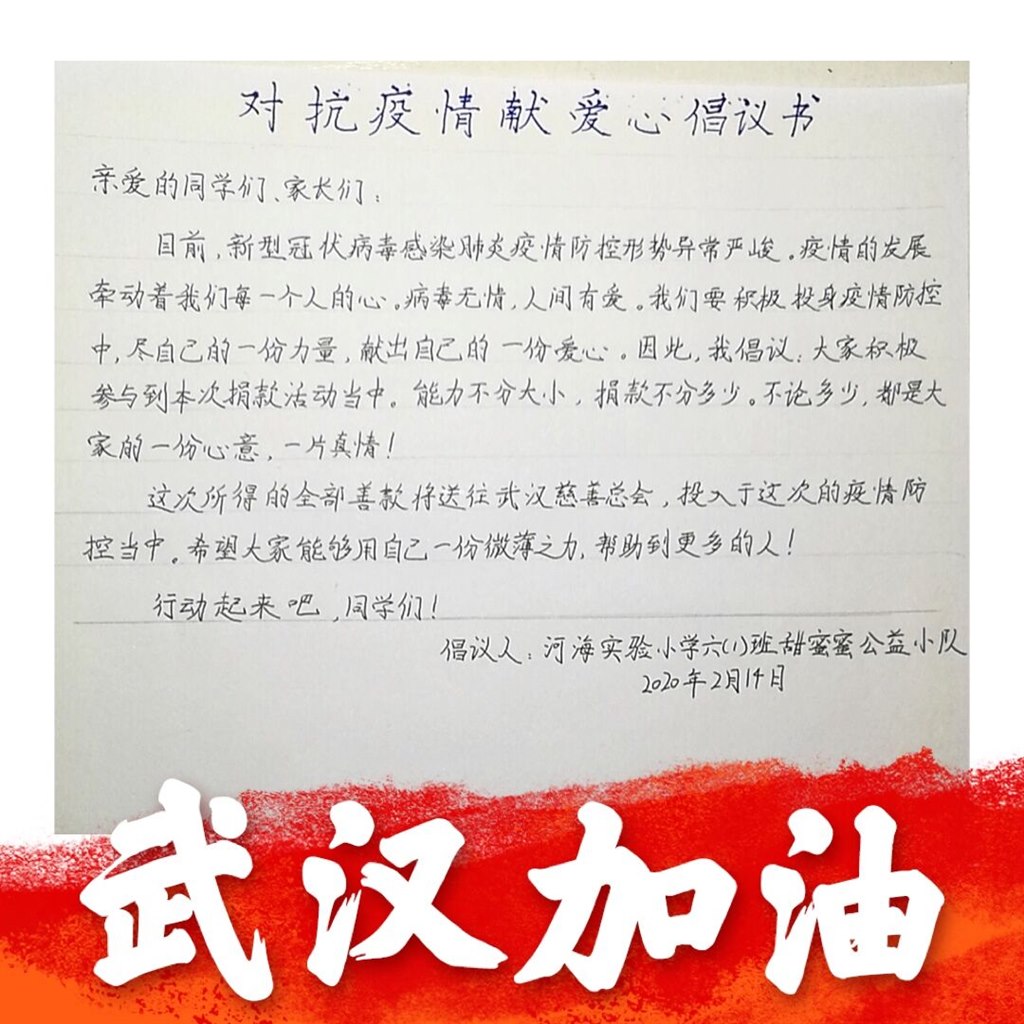 对抗疫情献爱心倡议书
亲爱的同学们、家长们：
目前，新型冠伏病毒感染肺炎疫情防控形势异常严峻。疫情的发展
牵动着我们每一个人的心。病毒无情，人间有爱。我们要积极投身疫情防控
中，尽自己的一份力量，献出自己的一份爱心。因此，我倡议：大家积极
参与到本次捐款活动当中。能力不分大小，捐款不分多少。不论多少，都是大
家的一份心意，一片真情！
这次所得的全部善款将送往武汉慈善总会，投入于这次的疫情防
控当中。希望大家能够用自己一份微薄之力，帮助到更多的人！
行动起来吧，同学们！
倡议人：河海实验小学六(1)班甜蜜蜜公益小队
2020年2月14日
武汉加油